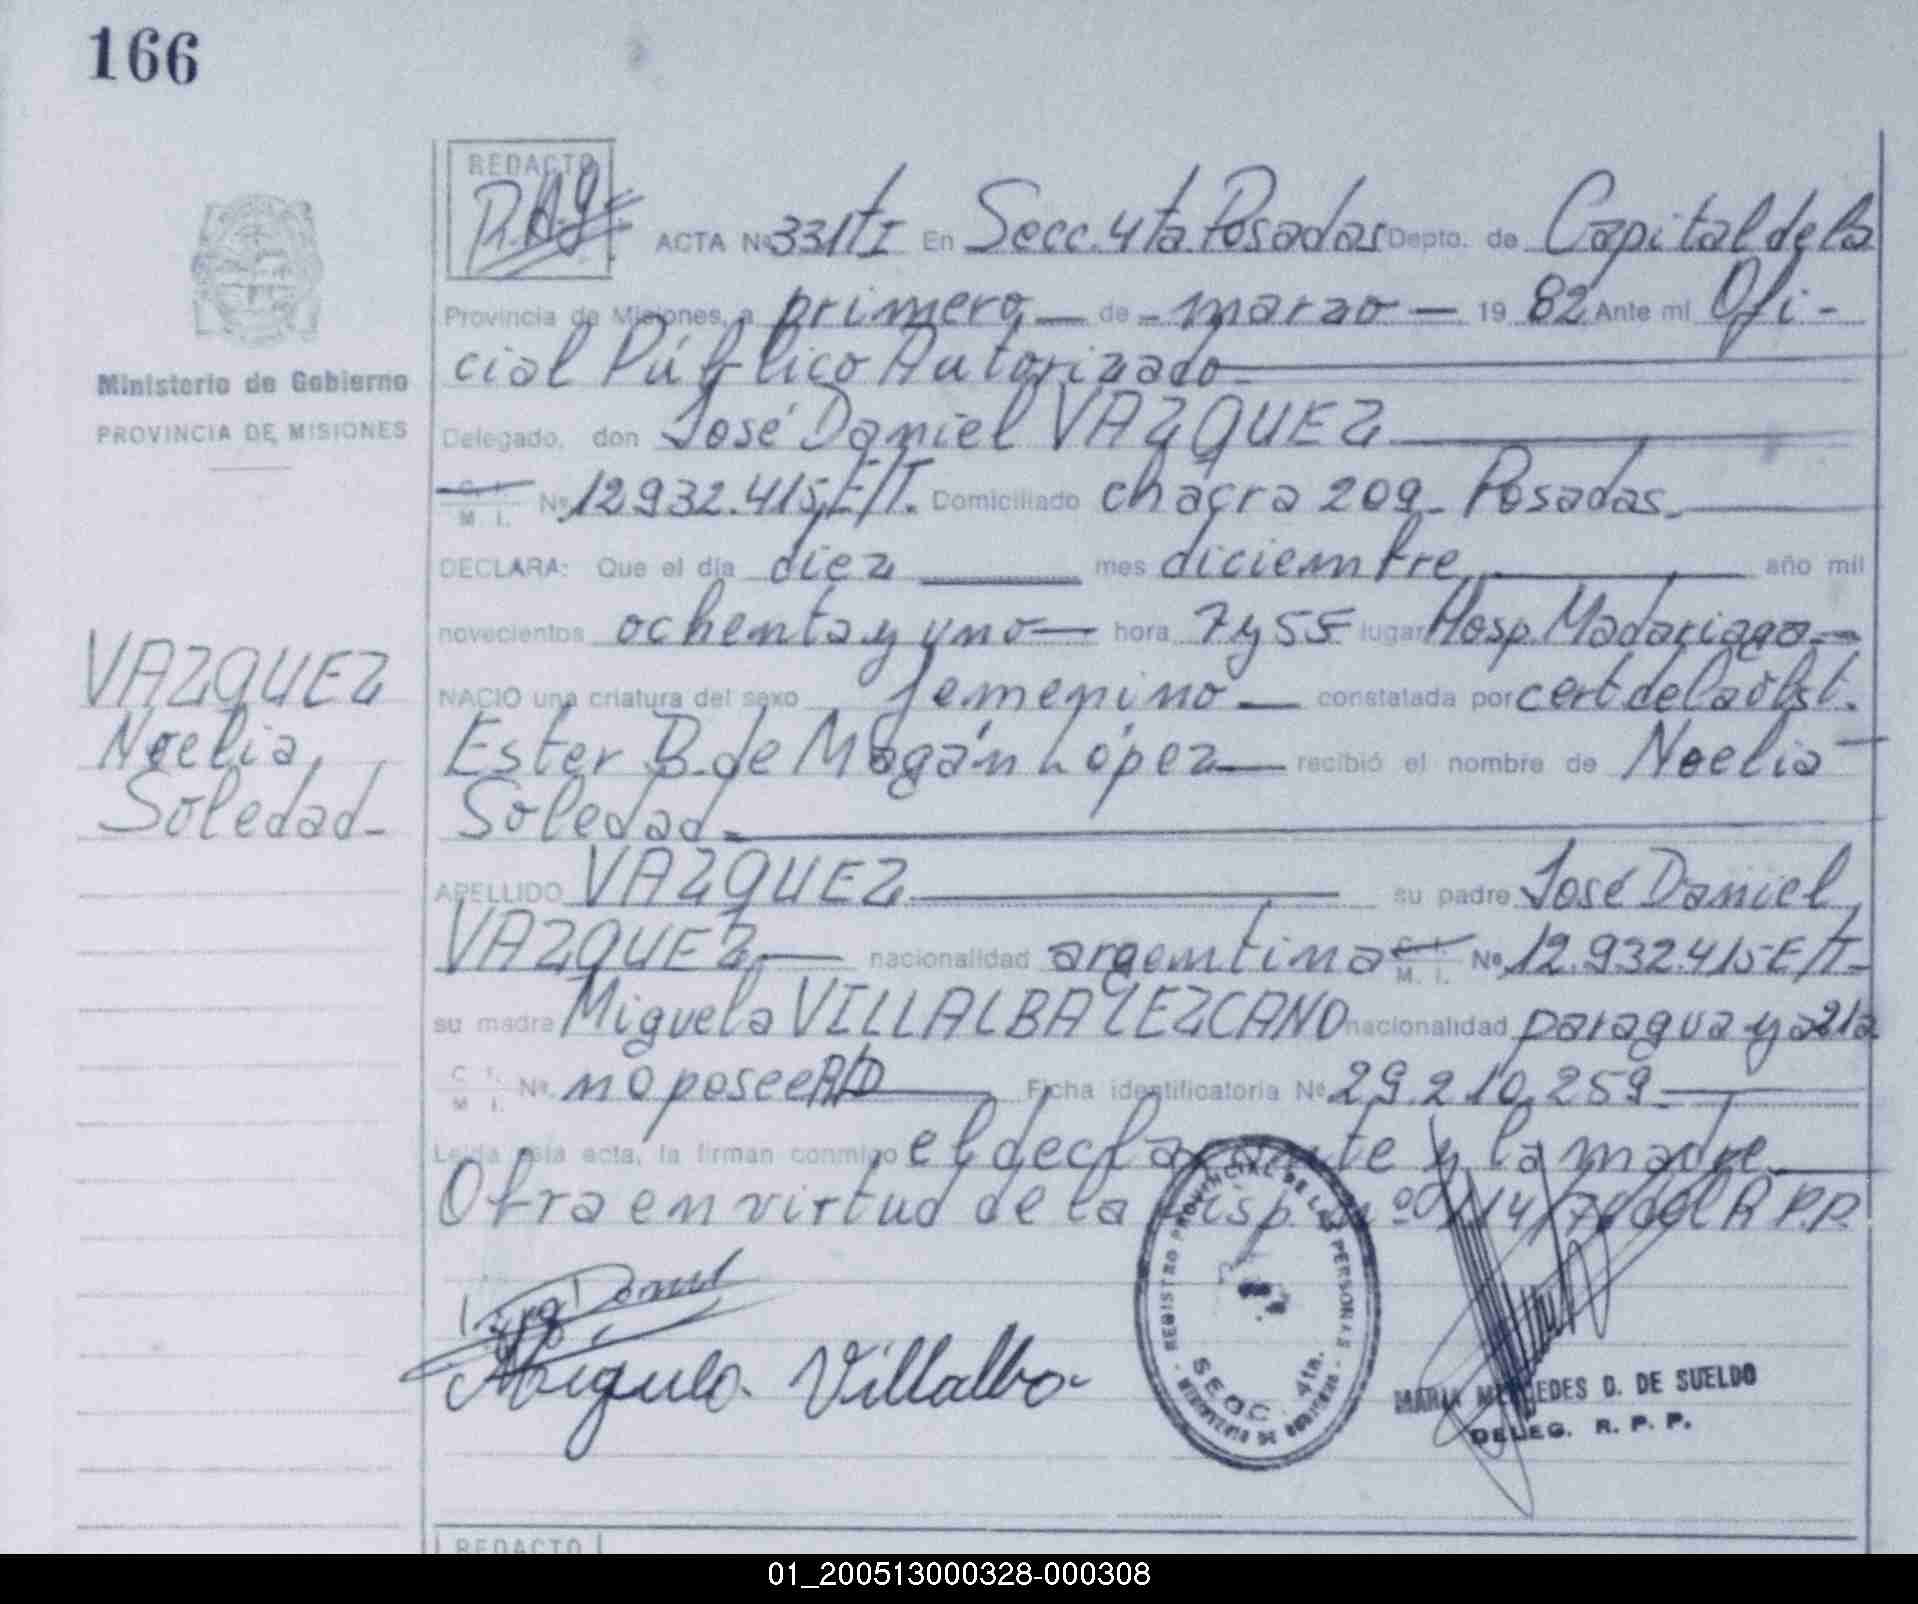 166
REDACTO
ACTA Nº 331 tI En Secc. 4ta. Posadas Depto. de Capital de la
Provincia de Misiones, a primero — de — marzo — 19 82 Ante mi Ofi-
cial Público Autorizado
Ministerio de Gobierno
PROVINCIA DE MISIONES
Delegado, don José Daniel VAZQUEZ
C. I. M. I. Nº 12.932.415, E/T. Domiciliado chacra 209 - Posadas.
DECLARA: Que el día diez mes diciembre año mil
novecientos ochenta y uno — hora 7 y 55 lugar Hosp. Madariaga -
VAZQUEZ
Noelia
Soledad -
NACIO una criatura del sexo femenino — constatada por cert de la obst.
Ester B. de Magán López — recibió el nombre de Noelia —
Soledad
APELLIDO VAZQUEZ su padre José Daniel
VAZQUEZ — nacionalidad argentina C. I. M. I. Nº 12.932.415 E/T -
su madre Miguela VILLALBA LEZCANO nacionalidad paraguaya 21a
C. I. M. I. Nº no posee A/D Ficha identificatoria Nº 29.210.259
Leída esta acta, la firman conmigo el declarante y la madre.
Obra en virtud de la Disp. nº del R P.P.
Miguela Villalba
REGISTRO PROVINCIAL DE LAS PERSONAS
SECC. 4ta.
MINISTERIO DE GOBIERNO
MARIA MERCEDES D. DE SUELDO
DELEG. R. P. P.
REDACTO
01_200513000328-000308